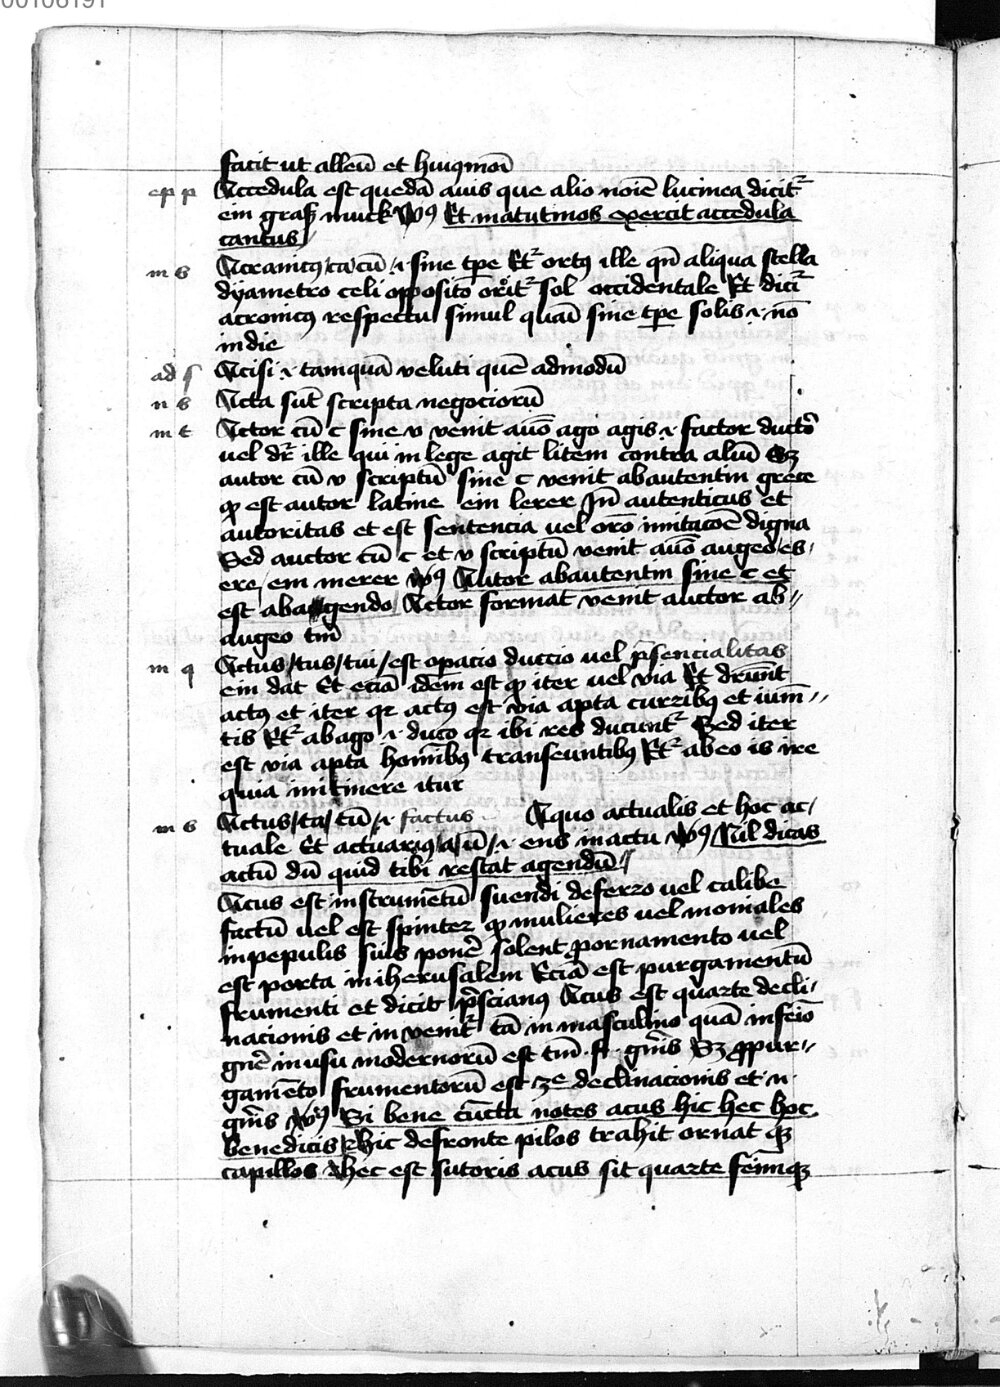 00106191
facit ut alleū et huiꝰmōi
ep p Accedula est quedā auis que alio noīe lucinea dicitᷣ
ein graß muck vꝰ Et matutinos exercit accedula
cantus
m s Acranicꝰ ca cū ·i· sine tꝑe Etᷣ ortꝰ ille qn̄ aliqua stella
dyametro celi opposito oritᷣ sol occidentale Et dicitᷣ
acronicꝰ respectu simul quam sine tꝑe solis ·i· nō
in die
ad s Acisi ·i· tamquā veluti quē admodū
n s Acta sūt scripta negociorū
m t Actor cū c sine v venit a vō ago agis ·i· factor ductor
vel dr̄ ille qui in lege agit litem contra aliū Sꝫ
autor cū v scriptū sine c venit ab autentin grece
qꝫ est autor latine ein lerer Jn̄ autenticus et
autoritas et est sentencia vel orō imitacōe digna
Sed auctor cū c et v scriptū venit a vō augeo es
ere ein merer vꝰ Autor ab autentin sine c et
est ab agendo Actor format venit auctor ab
augeo tm̄
m q Actus tus tui est opacio duccio vel p̄sencialitas
ein dat Et eciā idem est qꝫ iter vel via Et dr̄unt
actꝰ et iter qꝛ actꝰ est via apta curribꝰ et ium̄
tis Etᷣ ab ago ·i· duco qꝛ ibi res ducuntᷣ Sed iter
est via apta hoībꝰ transeuntibꝰ Etᷣ ab eo is ire
quia in itinere itur
m s Actus ta tū ·i· factus A quo actualis et hoc ac
tuale Et actuariꝰ a ū ·i· ens in actu vꝰ Nil dicas
actū dū quid tibi restat agendū
Acus est instrumētū suendi de ferro vel calibe
factū vel est spinter qꝫ mulieres vel moniales
in pepulis suis ponē solent ꝓ ornamento vel
est porta in iherusalem Eciā est purgamentū
frumenti et dicit p̄scianꝰ Acus est quarte decli
nacionis et in venitᷣ tā in masculino quā in feīo
gn̄e in usu modernorū est tm̄ ·f· gn̄is Sꝫ ꝓ pur
gamēto frumentorū est ·3e· declinacionis et ·n·
gn̄is vꝰ Si bene cuncta notes acus hic hec hoc
benedicis Hic de fronte pilos trahit ornat qꝫ
capillos Hec est sutoris acus sit quarte feīnqꝫ